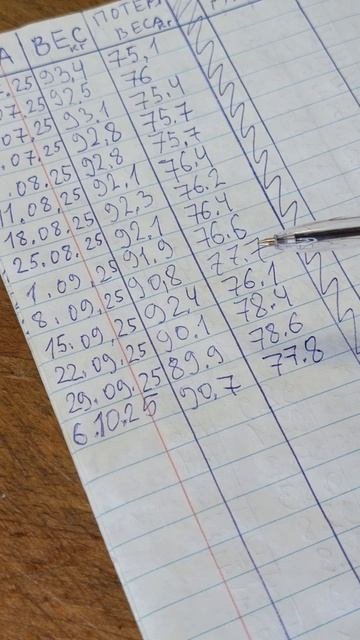 А ВЕС кг ПОТЕРЯ ВЕСА кг
.25 93,4 75.1
07.25 92.5 76
07.25 93.1 75.4
.07.25 92,8 75.7
.08.25 92.8 75.7
11.08.25 92.1 76.4
18.08.25 92,3 76.2
25.08.25 92.1 76.4
1.09.25 91.9 76.6
8.09.25 90,8 77.7
15.09.25 92.4 76.1
22.09.25 90.1 78.4
29.09.25 89.9 78.6
6.10.25 90,7 77.8